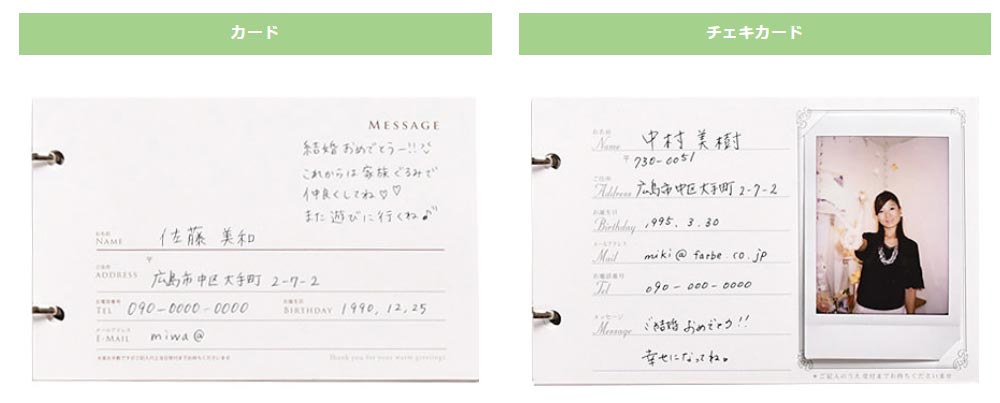 カード
MESSAGE
結婚おめでとうー!!
これからは家族ぐるみで
仲良くしてね♡♡
また遊びに行くね♪
お名前
NAME 佐藤 美和
〒
ご住所
ADDRESS 広島市中区大手町 2-7-2
お電話番号 お誕生日
TEL 090-0000-0000 BIRTHDAY 1990, 12, 25
メールアドレス
E-MAIL miwa@
※お手数ですがご記入の上当日受付までお持ちください
Thank you for your warm greetings
チェキカード
お名前
Name 中村 美樹
〒730-0051
ご住所
Address 広島市中区大手町 2-7-2
お誕生日
Birthday 1995. 3. 30
メールアドレス
Mail miki@farbe.co.jp
お電話番号
Tel 090-000-0000
メッセージ
Message ご結婚おめでとう!!
幸せになってね。
＊ご記入のうえ受付までお持ちくださいませ